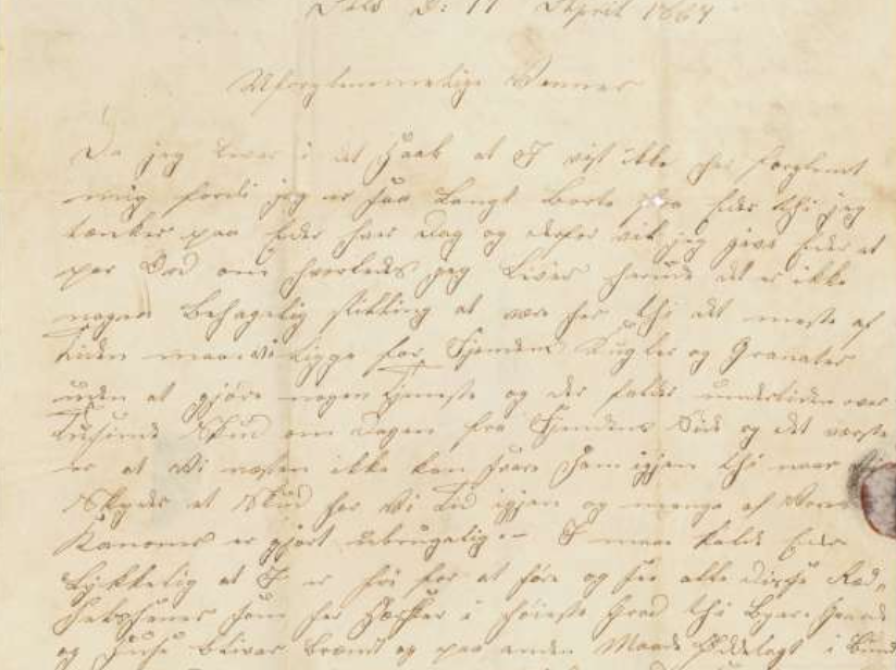 D: 11 April 1864
Uforglemmelige Venner
Da jeg lever i det Haab at I vist ikke har forglemt
mig fordi jeg er saa Langt Borte fra Eder thi jeg
tænker paa Eder hver Dag og derfor vil jeg give Eder et
par Ord om hvorledes jeg Lever herude det er ikke
nogen Behagelig stilling at være her thi det meste af
Tiden maa vi Ligge for Fjendens Kugler og Granater
uden at gjøre nogen Tjeneste og der falder undertiden over
Tusinde Skud om Dagen fra Fjendens Side og det værste
er at Vi næsten ikke kan svare ham igjen thi naar
Skyder et Skud har Vi igjen og mange af Vores
Kanoner er gjort ubrugelig - I maa kalde Eder
Lykkelig at I er fri for at høre og see alle disse Ræd-
her Hersker i høieste Grad thi Byer Gaarde
og Huse bliver brændt og paa anden Maade Ødelagt i Bund